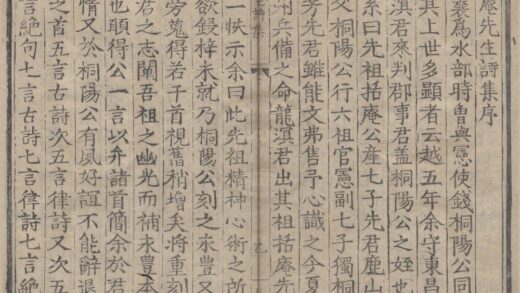 庵先生詩集序
襄爲水部時曾與憲使錢桐陽公同
其上世多顯者云越五年余守東昌
滇君來判郡事君盖桐陽公之姪也
系曰先祖括庵公產七子先君鹿山
父桐陽公行六祖官憲副七子獨桐
芳先君雖能文弗售予心識之今夏
州兵備之命龍滇君出其祖括庵先
詩集 乙
一帙示余曰此先祖精神心術之所
欲鋟梓未就乃桐陽公刻之未豊又
旁蒐得若干首視舊稍增矣將重刻
君之志闡吾祖之幽光而補未豊本
也頋得公一言以弁諸首簡余於君
惰又於桐陽公有夙好誼不能辭退
之首五言古詩次五言律詩又次五
言絶句七言古詩七言律詩七言絶